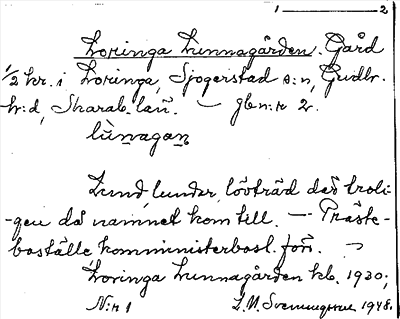 1 ——— 2
Loringa Lunnagården. Gård
1/2 hr. i Loringa, Sjogerstad s:n, Gudhr.
h:d, Skarab. län. — gbn:r 2.
lùnagan
Lund, lunder, lövträd des troli-
-gen då namnet kom till. — Präste-
boställe, komministerbost. förr. —
Loringa Lunnagården kb. 1930;
N:r 1 L. M. Svenungsson 1948.